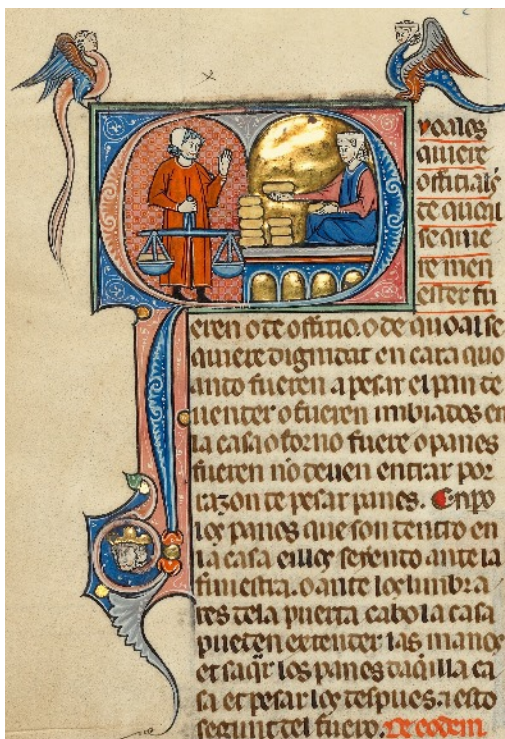 voales
quiere
officiales
de
se quie
re men
ester fu
eren o de offitio. o de quoal se
quiere dignitat en cara quo
ando fueren a pesar el pan de
uender o fueren imbiados en
la casa o forno fuere o panes
fueren no deuen entrar por
razon de pesar panes. Empo
los panes que son dentro en
la casa eillos seyendo ante la
finiestra. o ante los lumbra
res de la puerta cabo la casa
pueden extender las manos
et saqr los panes daquilla ca
sa et pesar los despues. a esto
segunt del fuero. De eodem